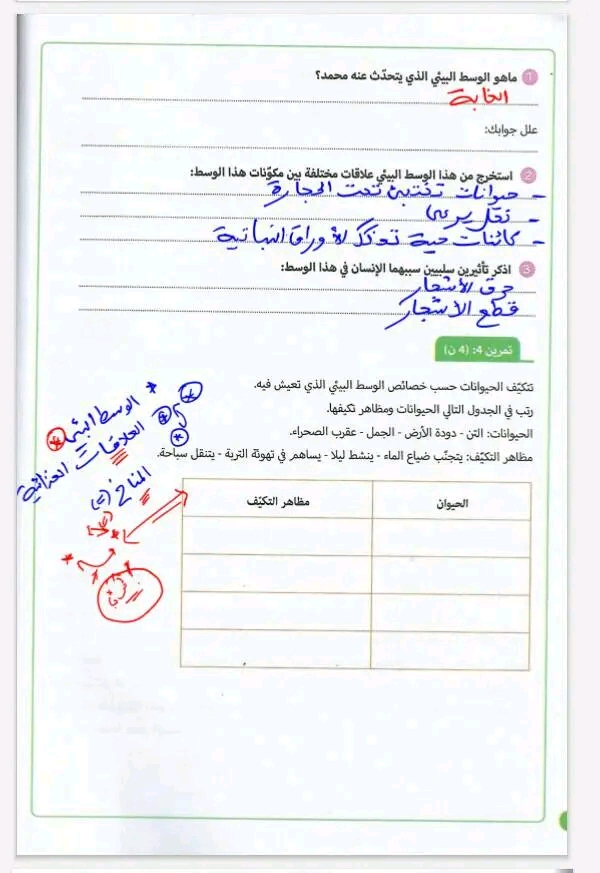 1 ماهو الوسط البيئي الذي يتحدّث عنه محمد؟
الغابة
علل جوابك:
2 استخرج من هذا الوسط البيئي علاقات مختلفة بين مكوّنات هذا الوسط:
- حيوانات تختبئ تحت الحجارة
- نحل يرعى
- كائنات حية تفكك الأوراق النباتية
3 اذكر تأثيرين سلبيين سببهما الإنسان في هذا الوسط:
حرق الأشجار
قطع الأشجار
تمرين 4: (4 ن)
تتكيّف الحيوانات حسب خصائص الوسط البيئي الذي تعيش فيه.
رتب في الجدول التالي الحيوانات ومظاهر تكيفها.
الحيوانات: التن - دودة الأرض - الجمل - عقرب الصحراء.
مظاهر التكيّف: يتجنّب ضياع الماء - ينشط ليلا - يساهم في تهوئة التربة - يتنقل سباحة.
الحيوان
مظاهر التكيّف
* الوسط البيئي
العلاقات الغذائية
المناخ